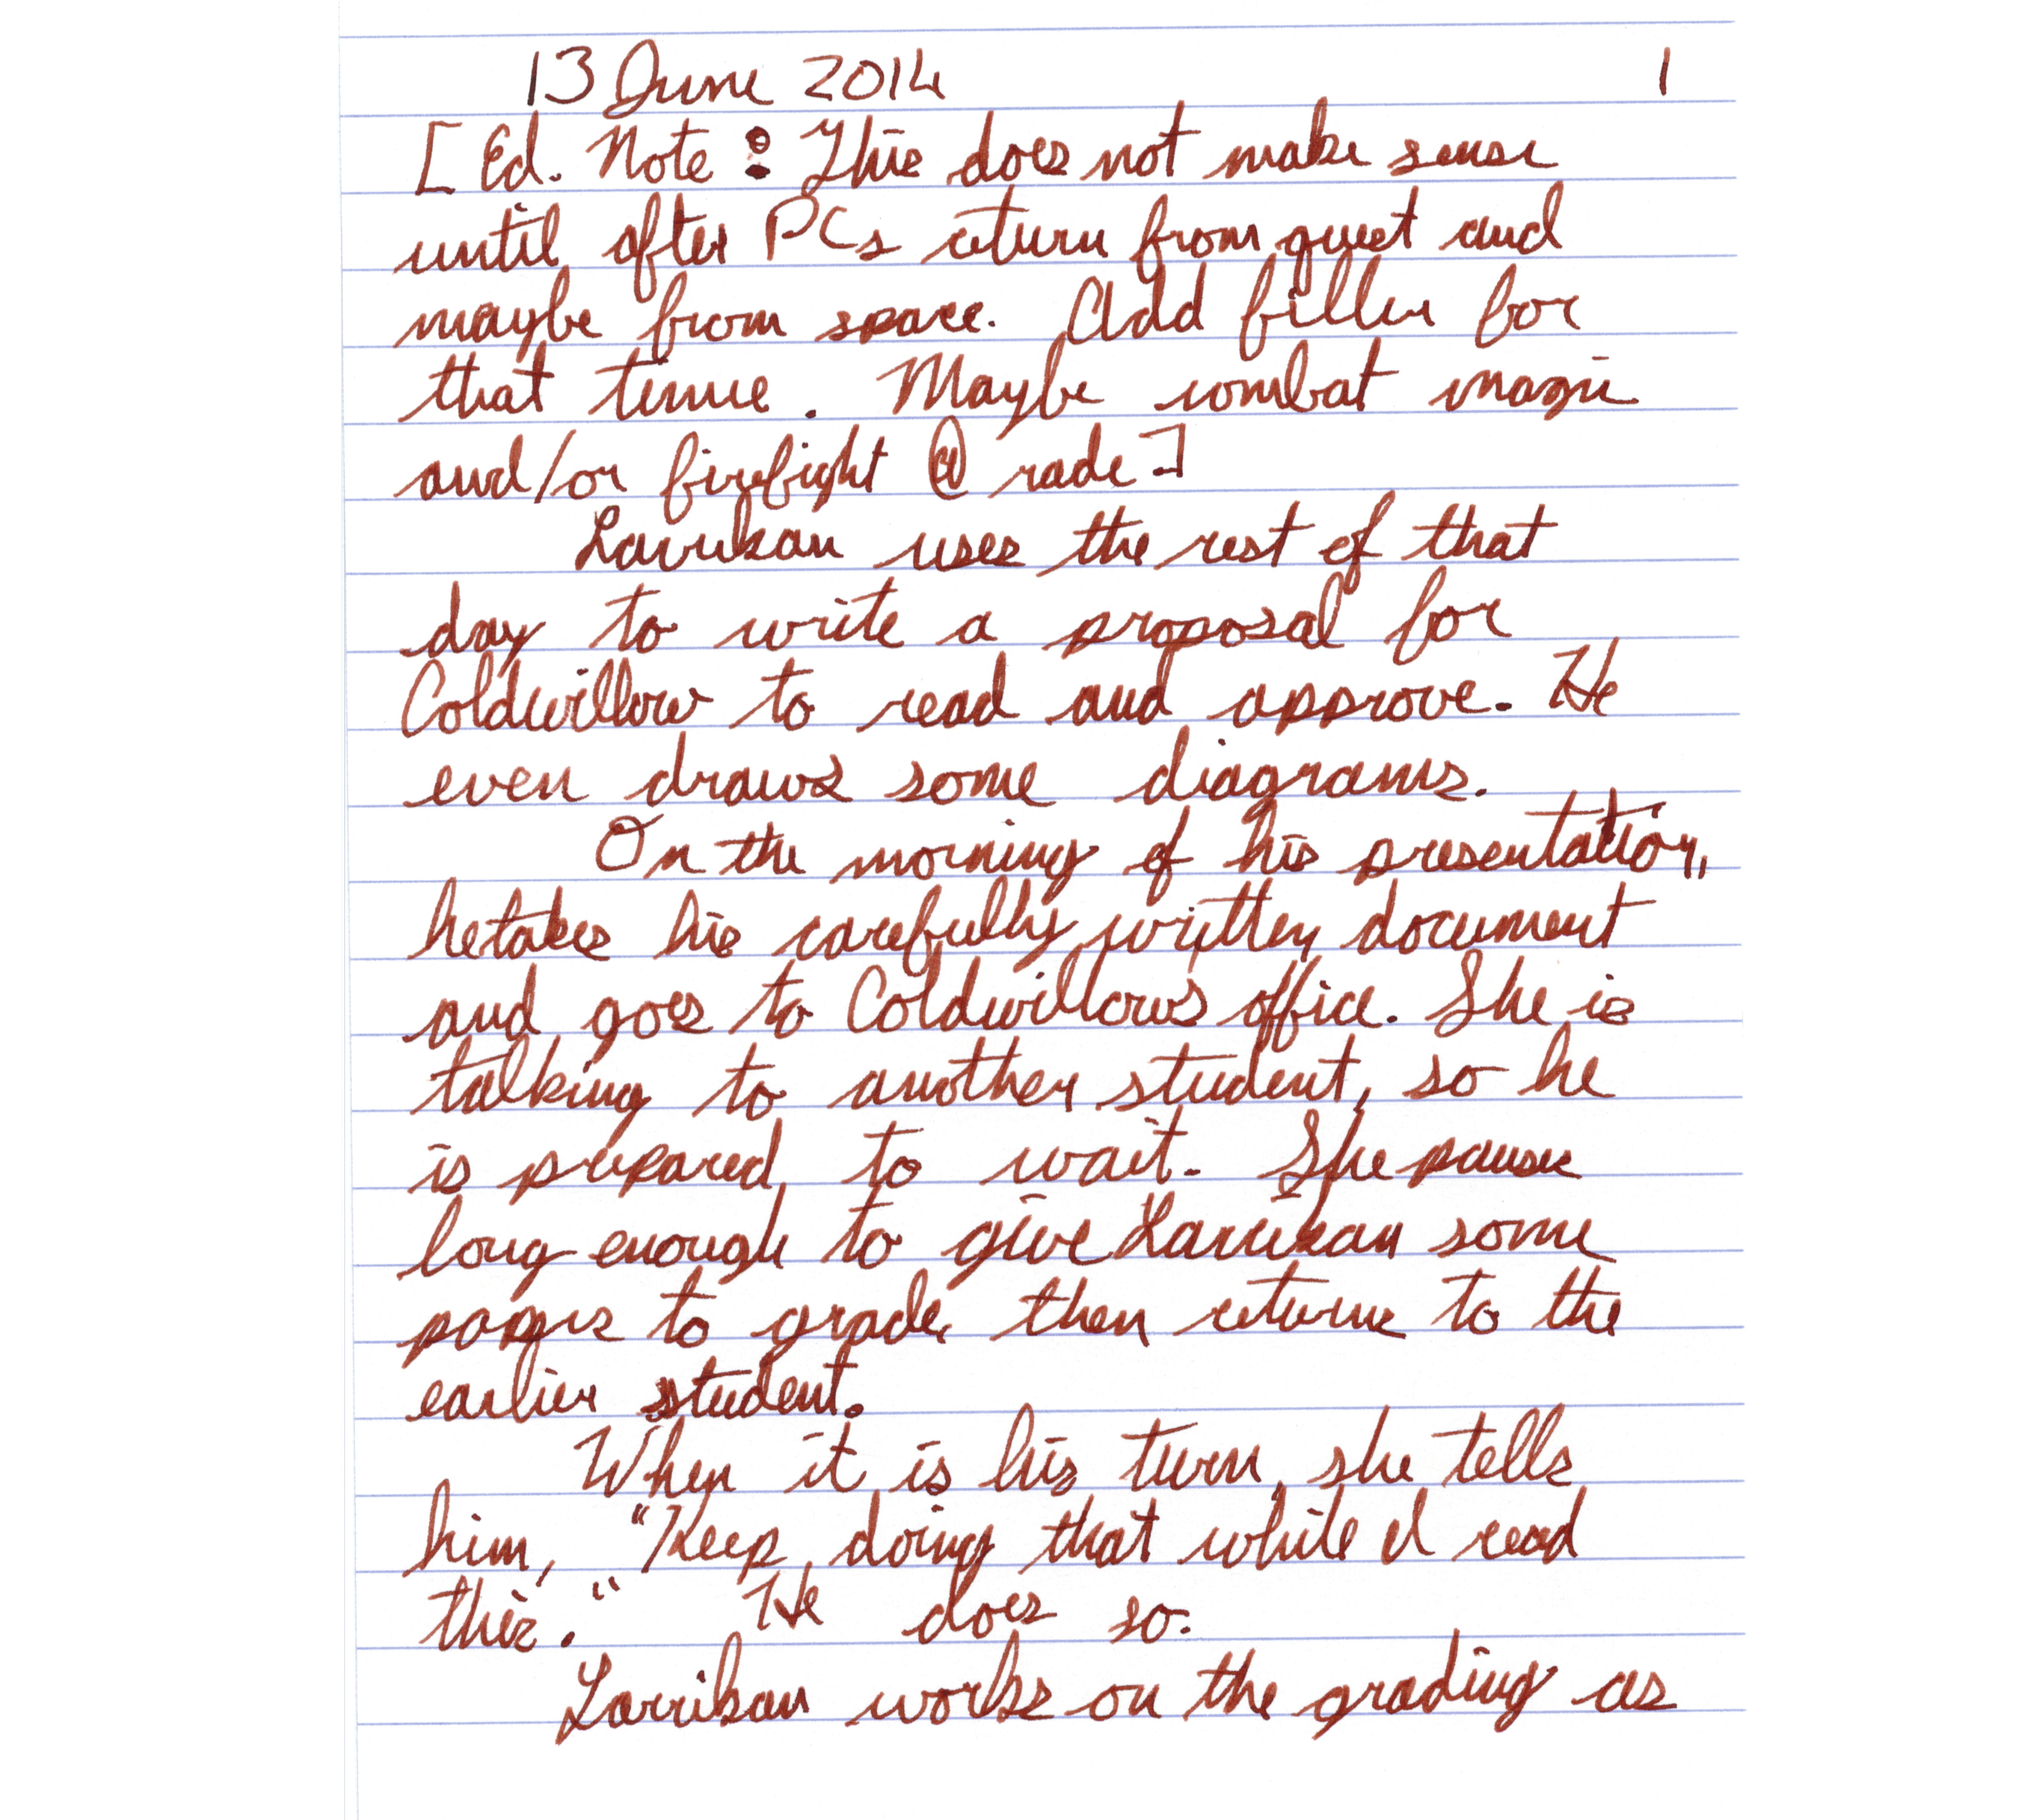 13 June 2014 1
[Ed. Note: This does not make sense
until after PCs return from quest and
maybe from space. Add filler for
that time. Maybe combat magic
and/or firefight @ rade]
Larrikan uses the rest of that
day to write a proposal for
Coldwillow to read and approve. He
even draws some diagrams.
On the morning of his presentation,
he takes his carefully written document
and goes to Coldwillow's office. She is
talking to another student, so he
is prepared to wait. She pauses
long enough to give Larrikan some
pages to grade, then returns to the
earlier student.
When it is his turn, she tells
him, "Keep doing that while I read
this." He does so.
Larrikan works on the grading as